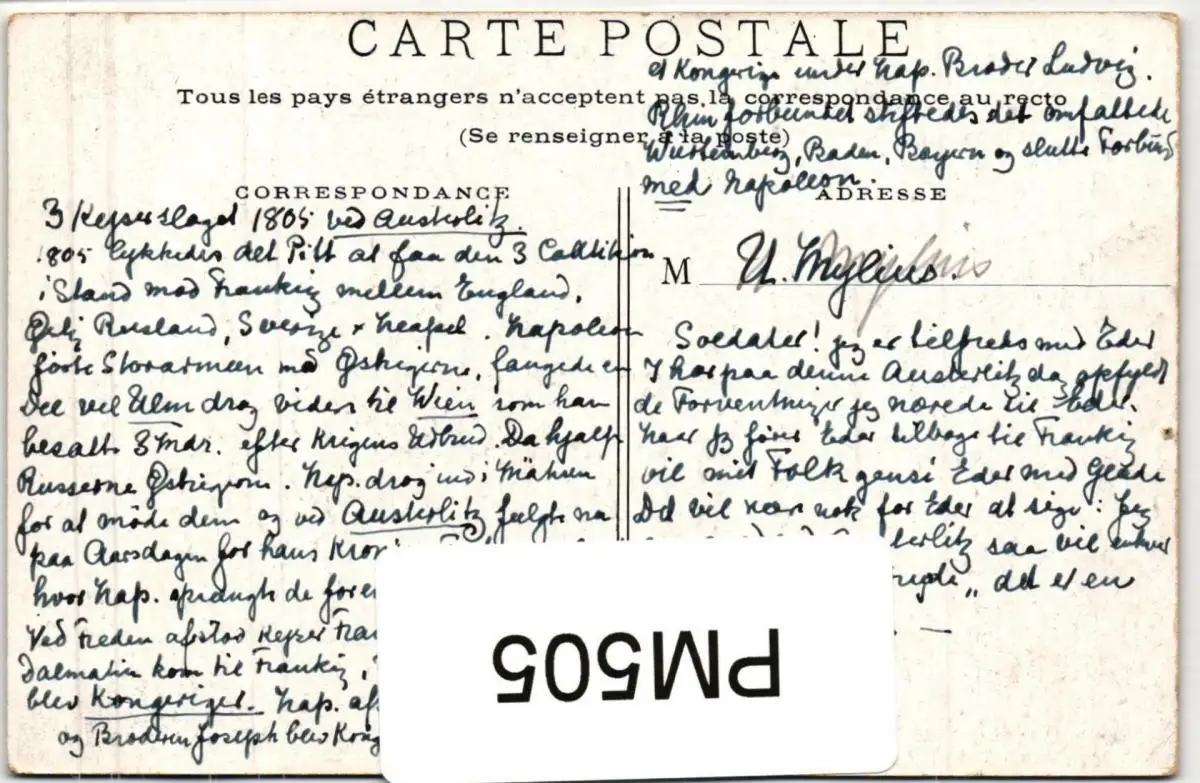 CARTE POSTALE
Tous les pays étrangers n'acceptent pas la correspondance au recto
(Se renseigner à la poste)
CORRESPONDANCE
3 Kejserslaget 1805 ved Austerlitz.
1805 lykkedes det Pitt at faa den 3 Coalition
i Stand mod Frankrig mellem England,
Østr. Rusland, Sverige + Neapel. Napoleon
førte Storarmeen mod Østrigerne, fangede en
Del vel Ulm drog videre til Wien som han
besatte 3 Mdr. efter Krigens Udbrud. Da hjalp
Russerne Østrigerne. Nap. drog ind i Mähren
for at møde dem og ved Austerlitz fulgte na
paa Aarsdagen for hans Kron
hvor Nap. sprængte de foren
Ved Freden afstod Kejser Fran
Dalmatien kom til Frankrig,
blev Kongeriger. Nap. af
og Broderen Joseph blev Kong
et Kongerige under Nap. Broder Ludvig.
Rhinforbundet stiftedes det omfattede
Würtemberg, Baden, Bayern og slutte Forbund
med Napoleon.
ADRESSE
M U. Mylius
Soldater! jeg er tilfreds med Eder
I har paa denne Austerlitz dag opfyldt
de Forventninger jeg nærede til Eder.
Naar jeg fører Eder tilbage til Frankrig
vil mit Folk gense Eder med Glæde
Det vil være nok for Eder at sige: Jeg
terlitz saa vil enhver
"det er en
PM505